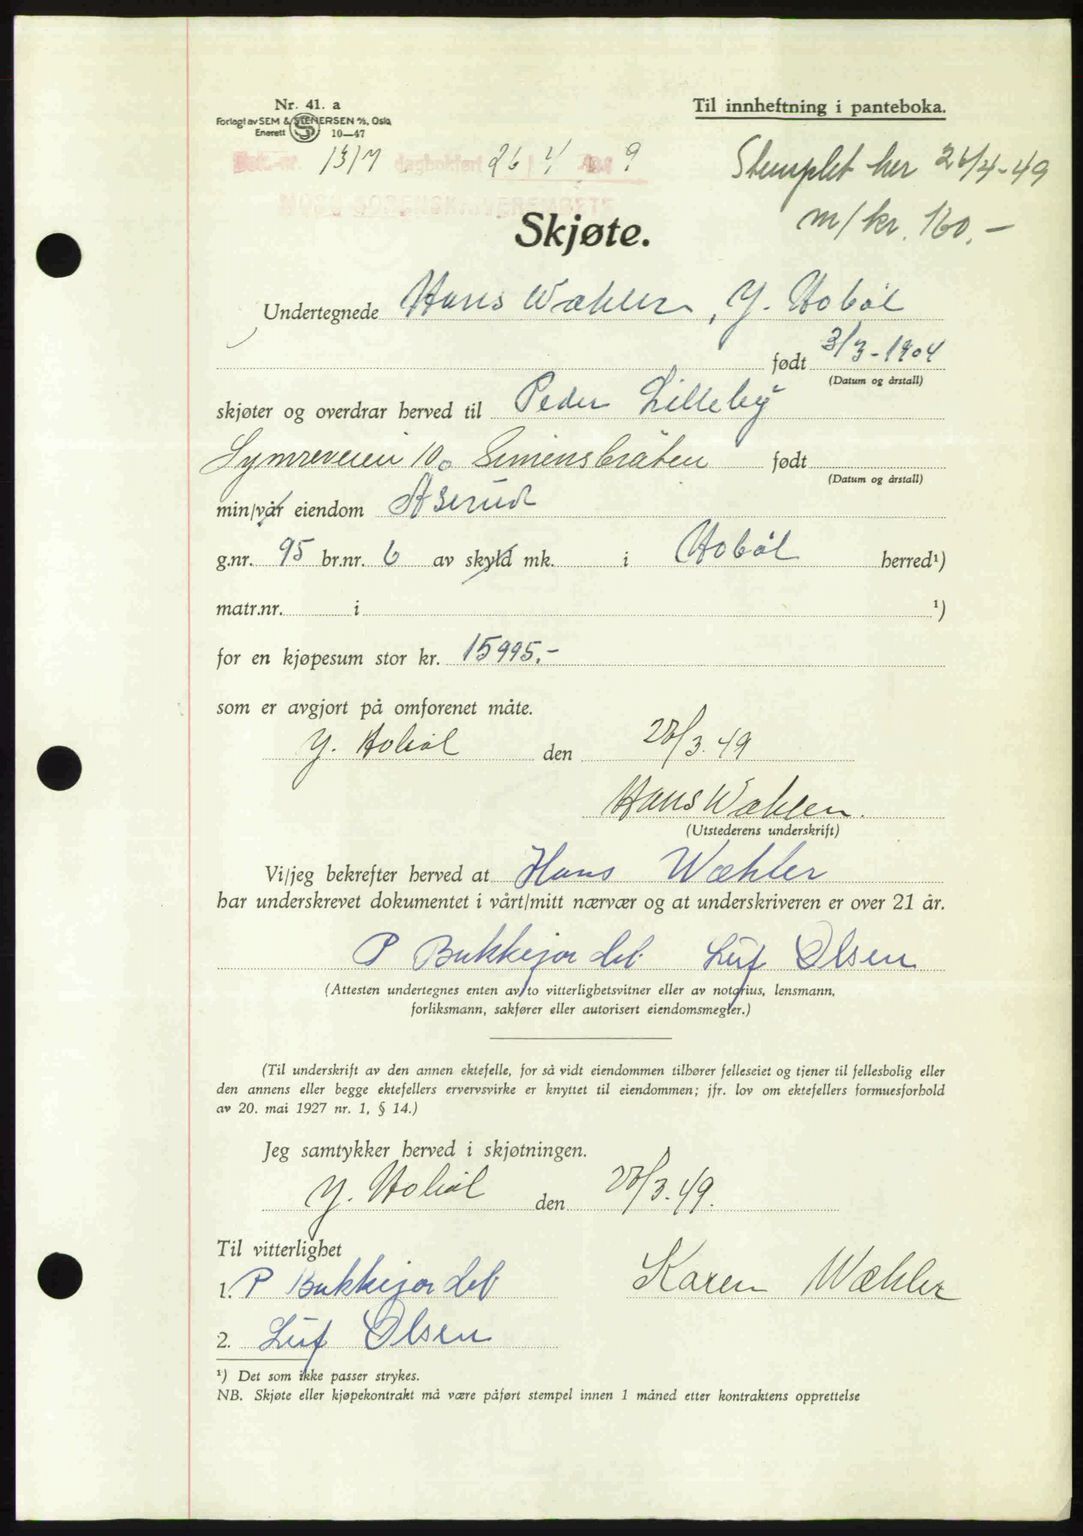 Nr. 41. a
Til innheftning i panteboka.
Forlagt av SEM & STENERSEN A/S, Oslo
Enerett 10—47
Dok.-nr. 1317 dagbokført 26 / 4 19 9
MOSS SORENSKRIVEREMBETE
Stemplet her 26/4-49
m/kr. 160.-
Skjøte.
Undertegnede Hans Wæhler, Y. Hobøl
født 3/3-1904
(Datum og årstall)
skjøter og overdrar herved til Peder Lilleby
Symreveien 10, Simensbråten født
(Datum og årstall)
min/vår eiendom Åserud
g.nr. 95 br.nr. 6 av skyld mk. i Hobøl herred¹)
matr.nr. i ¹)
for en kjøpesum stor kr. 15995.-
som er avgjort på omforenet måte.
Y. Hobøl den /3.49
Hans Wæhler.
(Utstederens underskrift)
Vi/jeg bekrefter herved at Hans Wæhler
har underskrevet dokumentet i vårt/mitt nærvær og at underskriveren er over 21 år.
P Bukkejordet Leif Olsen
(Attesten undertegnes enten av to vitterlighetsvitner eller av notarius, lensmann,
forliksmann, sakfører eller autorisert eiendomsmegler.)
(Til underskrift av den annen ektefelle, for så vidt eiendommen tilhører felleseiet og tjener til fellesbolig eller
den annens eller begge ektefellers ervervsvirke er knyttet til eiendommen; jfr. lov om ektefellers formuesforhold
av 20. mai 1927 nr. 1, § 14.)
Jeg samtykker herved i skjøtningen.
Y. Hobøl den /3.49.
Til vitterlighet
1. P Bukkejordet Karen Wæhler
2. Leif Olsen
¹) Det som ikke passer strykes.
NB. Skjøte eller kjøpekontrakt må være påført stempel innen 1 måned etter kontraktens opprettelse